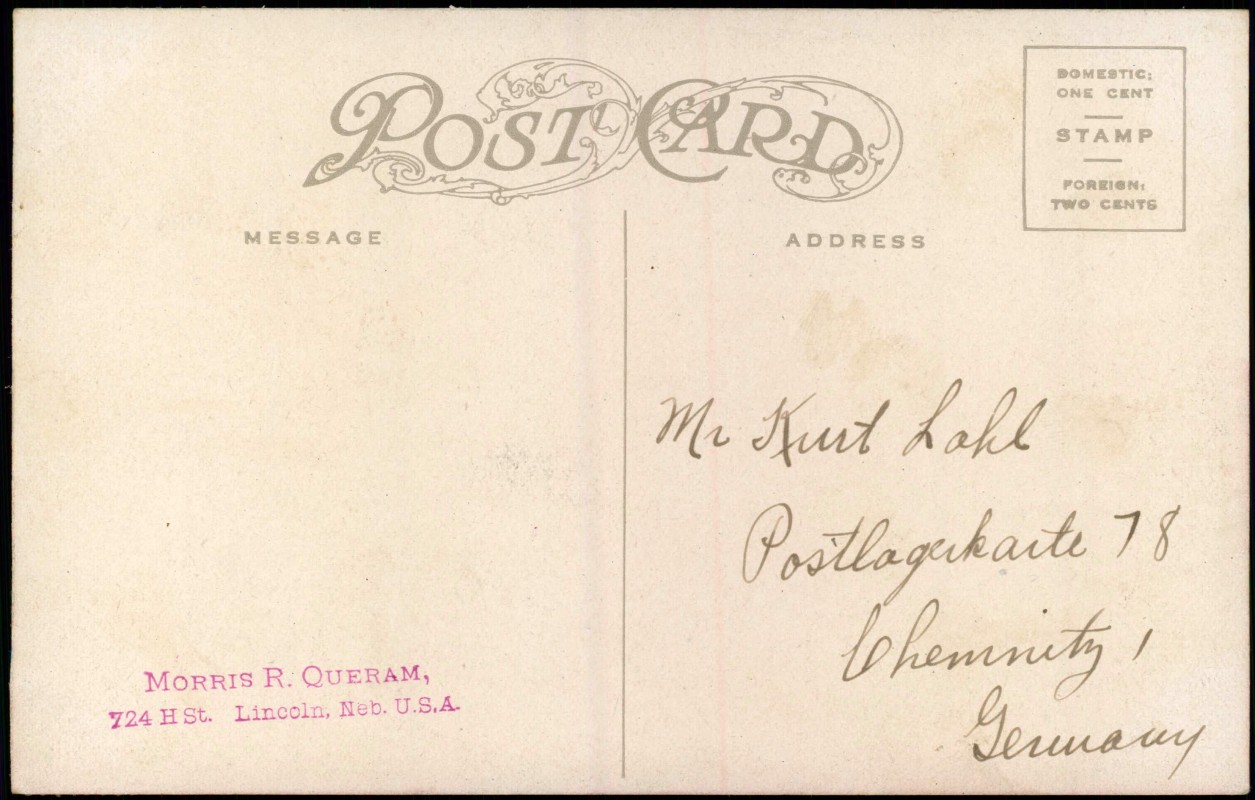 POST CARD
DOMESTIC:
ONE CENT
STAMP
FOREIGN:
TWO CENTS
MESSAGE
ADDRESS
Mr Kurt Lohl
Postlagerkarte 78
Chemnitz,
Germany
MORRIS R. QUERAM,
724 H St. Lincoln, Neb. U.S.A.